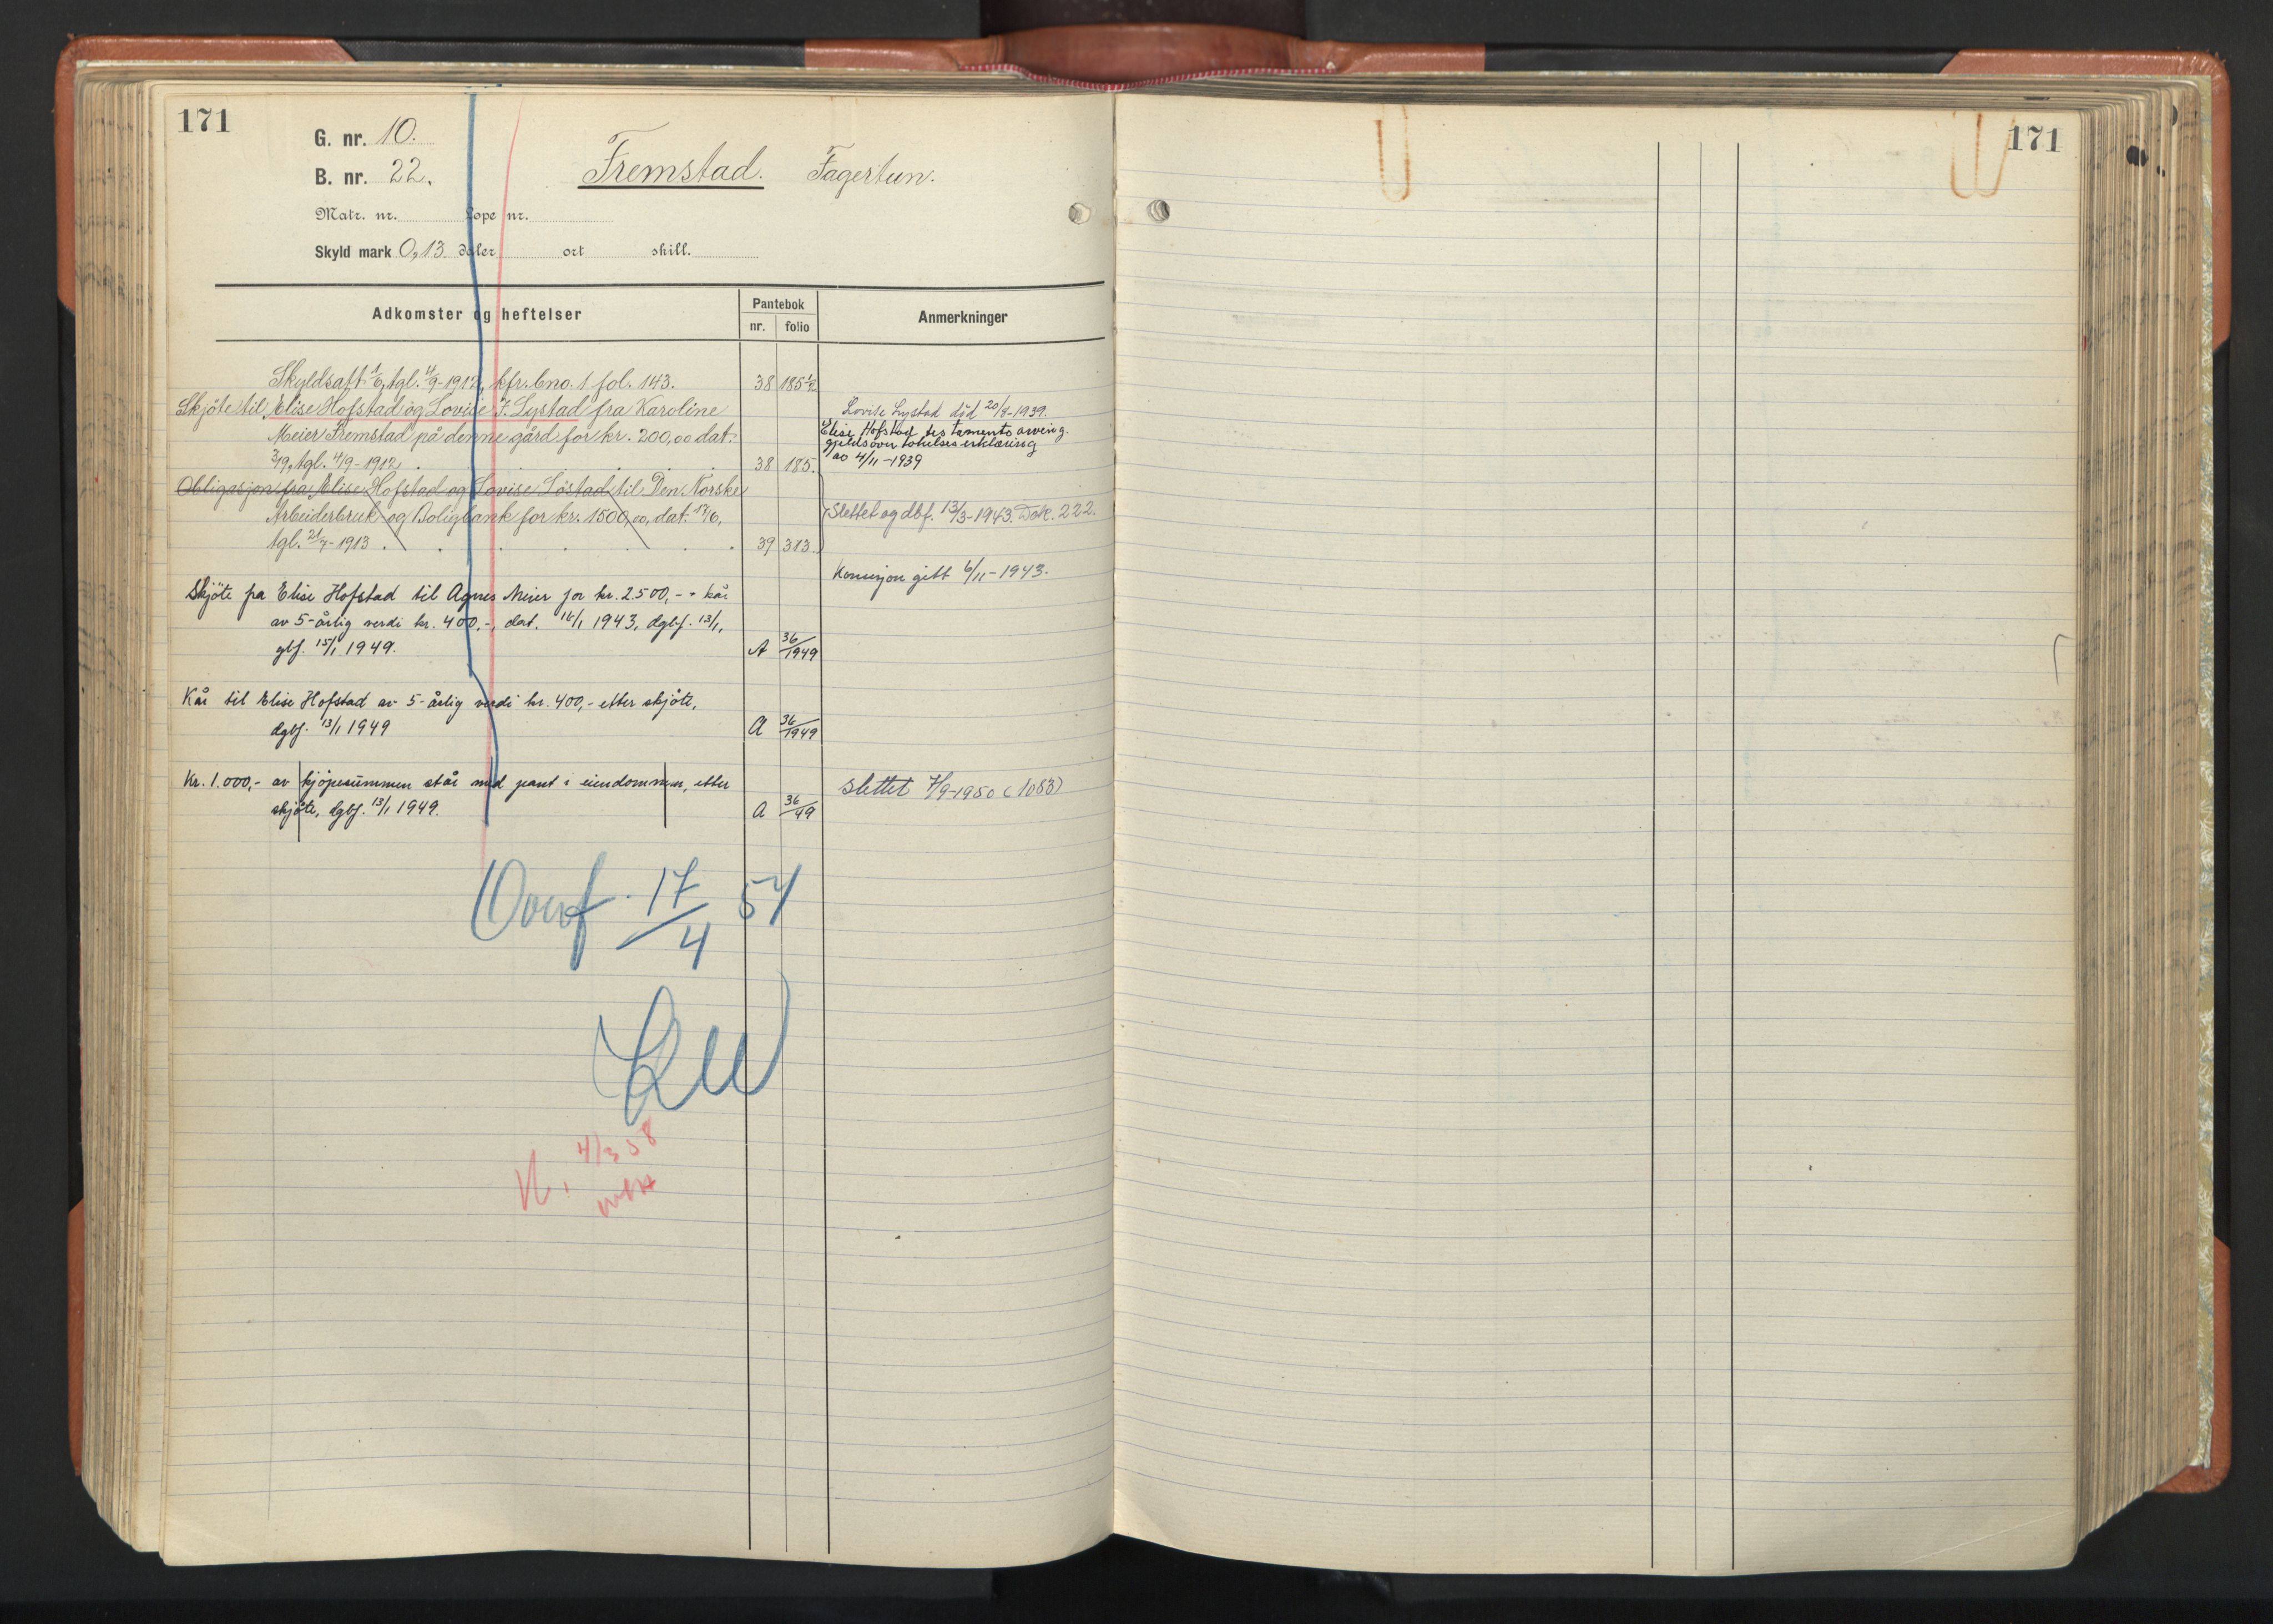 171
G. nr. 10.
B. nr. 22.
Fremstad. Fagertun.
Matr. nr. Løpe nr.
Skyld mark 0,13 daler ort skill.
Adkomster og heftelser
Pantebok
nr. folio
Anmerkninger
Skyldsaft. 1/6, tgl. 4/9-1912, kfr. bno. 1 fol. 143. 38 185 1/2
Skjöte til Elise Hofstad og Lovise J. Lystad fra Karoline
Meier Fremstad på denne gård for kr. 200,00 dat.
3/9, tgl. 4/9-1912 38 185.
Lovise Lystad död 20/8-1939.
Elise Hofstad testaments arving.
gjeldsovertakelseserklæring
av 4/11-1939
Obligasjon fra Elise Hofstad og Lovise Löstad til Den Norske
Arbeiderbruk og Boligbank for kr. 1500,00, dat. 17/6,
tgl. 21/7-1913 39 313.
Slettet og dbf. 13/3-1943. Dok. 222.
Konsesjon gitt 6/11-1943.
Skjöte fra Elise Hofstad til Agnes Meier for kr. 2.500,- + kår
av 5-årlig verdi kr. 400,-, dat. 16/1 1943, dgbf. 13/1,
gbf. 15/1 1949. A 36/1949
Kår til Elise Hofstad av 5-årlig verdi kr. 400,- etter skjöte,
dgbf. 13/1 1949 A 36/1949
Kr. 1.000,- av kjöpesummen står med pant i eiendommen, etter
skjöte, dgbf. 13/1 1949. A 36/49
Slettet 7/9-1950 (1053)
Overf. 17/4 57
K. 4/3 58
171